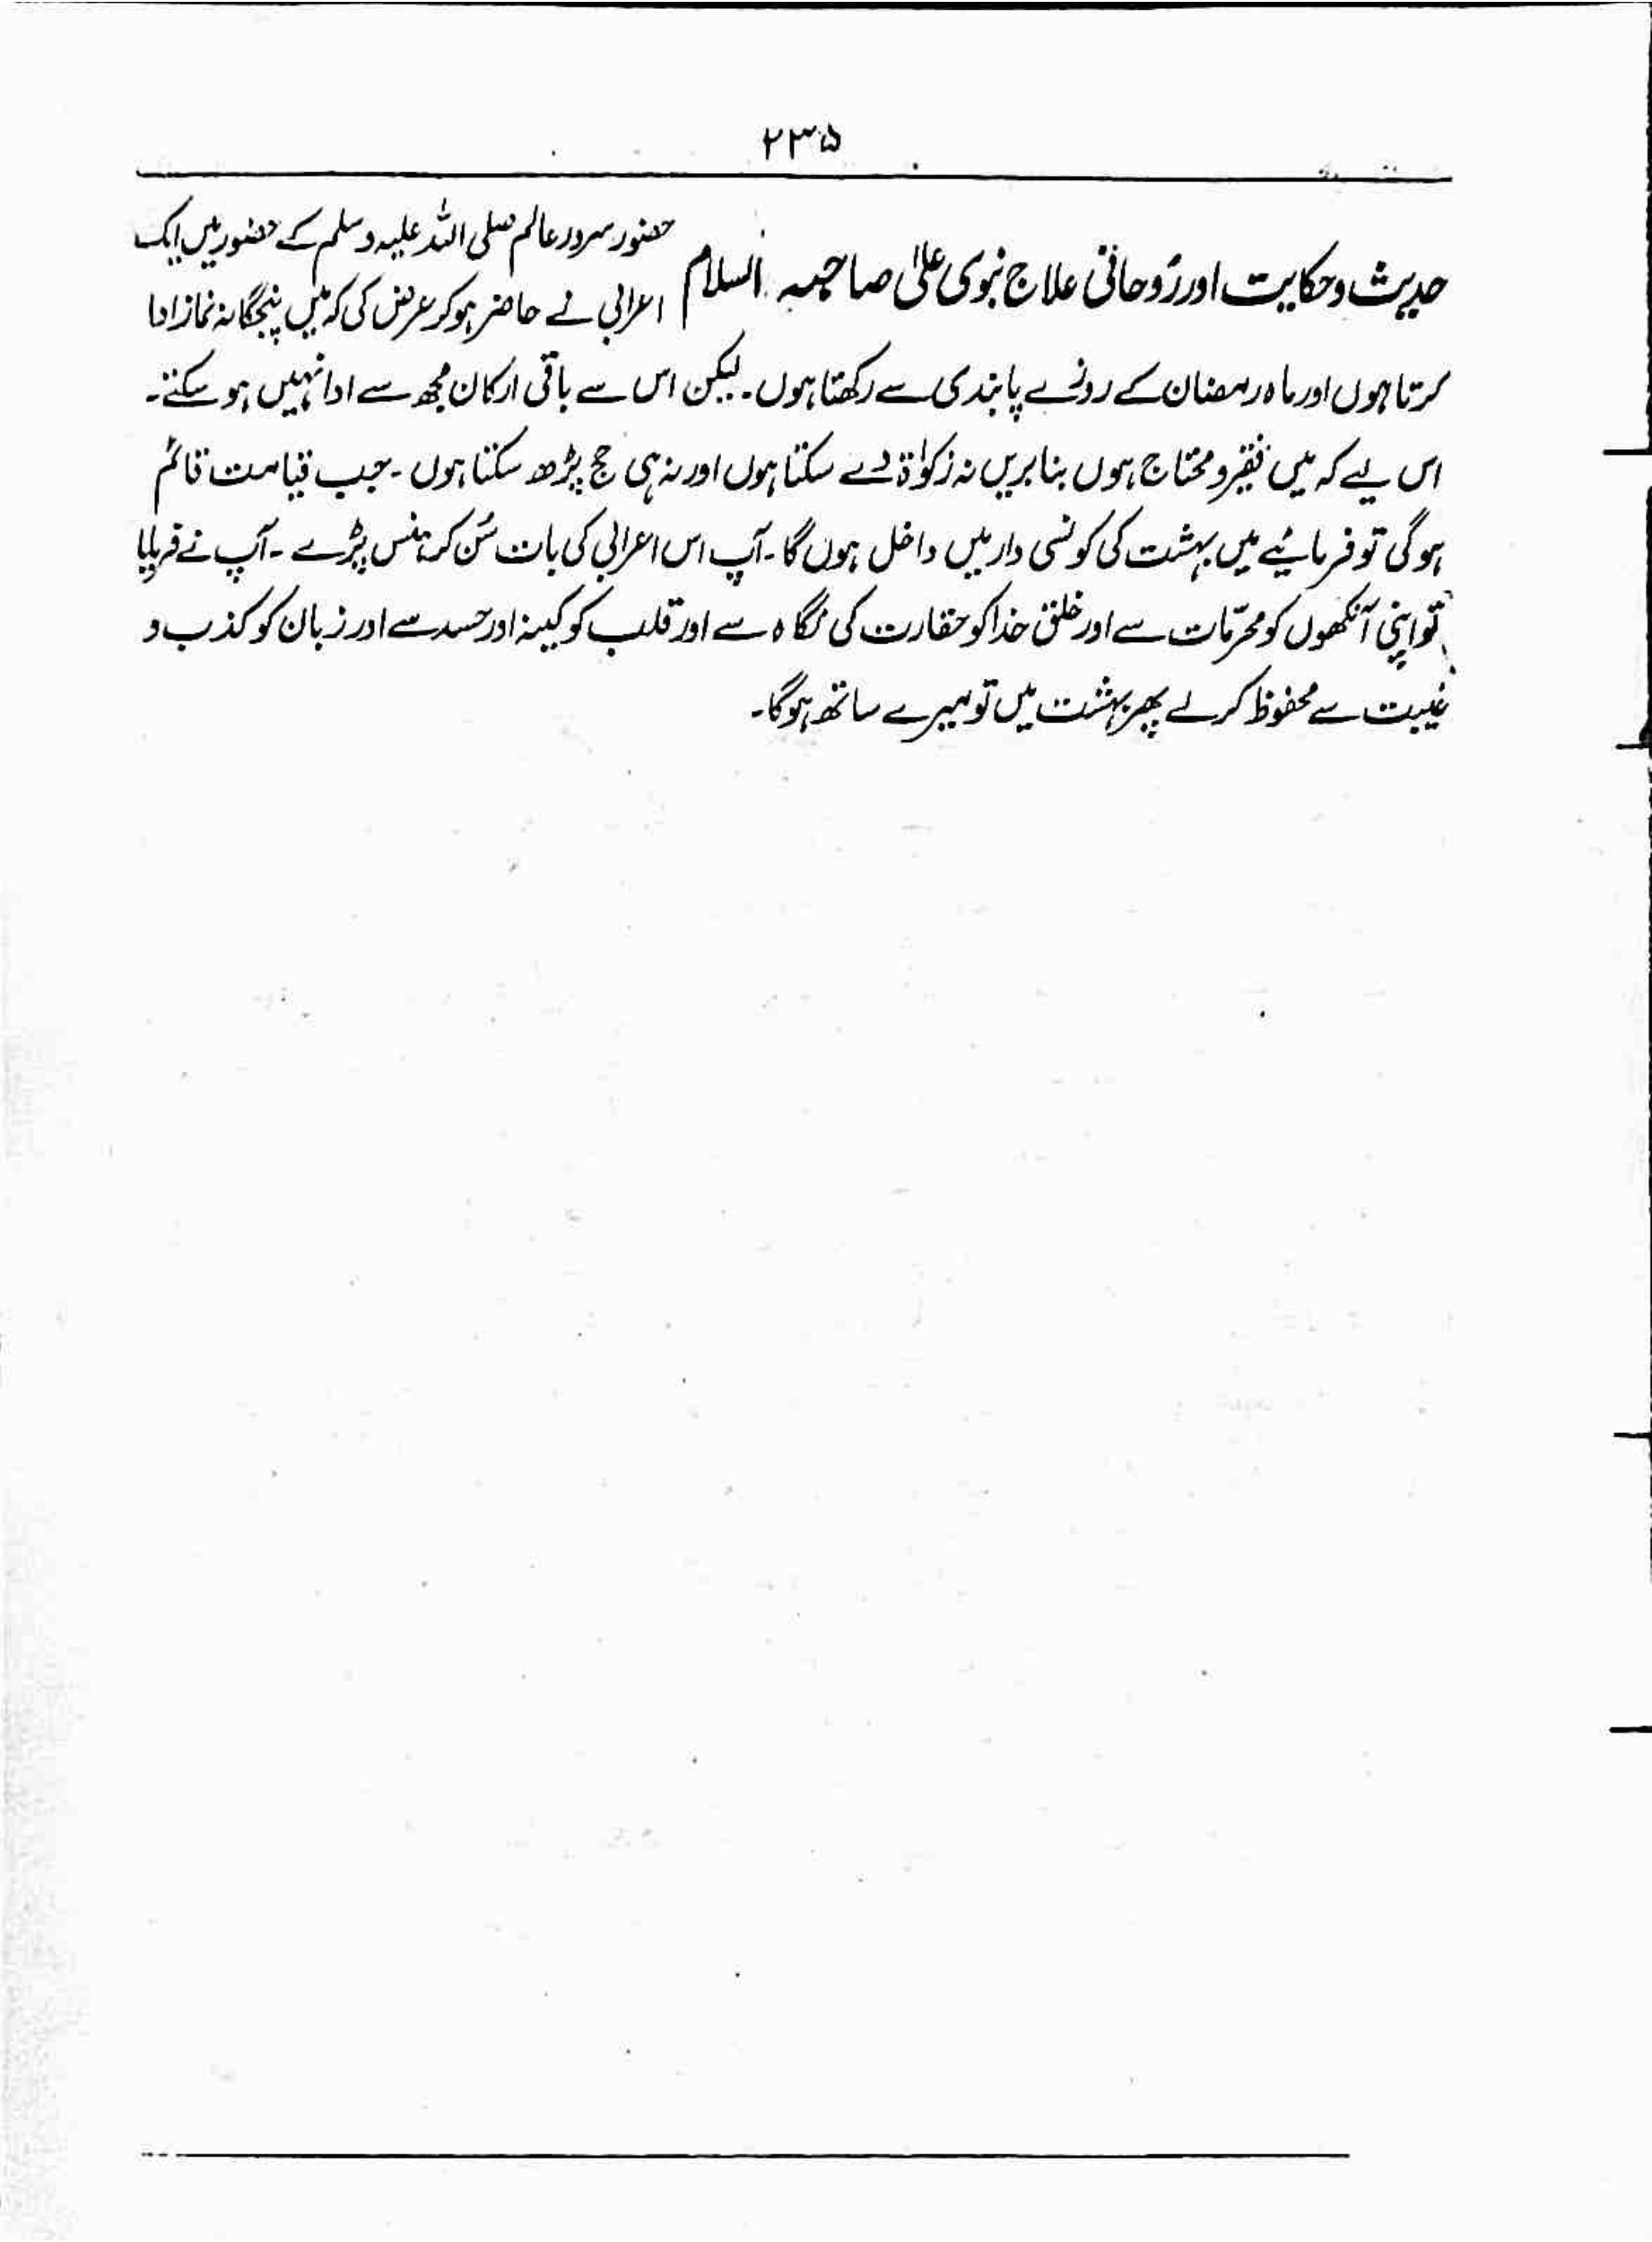 ۲۳۵
حدیث و حکایت اور رُوحانی علاج نبوی علیٰ صاحبہ السلام
حضور سرور عالم صلی اللہ علیہ وسلم کے حضور میں ایک
اعرابی نے حاضر ہو کر عرض کی کہ میں پنجگانہ نماز ادا
کرتا ہوں اور ماہ رمضان کے روزے پابندی سے رکھتا ہوں۔ لیکن اس سے باقی ارکان مجھ سے ادا نہیں ہو سکتے۔
اس لیے کہ میں فقیر و محتاج ہوں بنا بریں نہ زکوٰۃ دے سکتا ہوں اور نہ ہی حج پڑھ سکتا ہوں۔ جب قیامت قائم
ہو گی تو فرمائیے میں بہشت کی کونسی دار میں داخل ہوں گا۔ آپ اس اعرابی کی بات سُن کر ہنس پڑے۔ آپ نے فرمایا
تو اپنی آنکھوں کو محرّمات سے اور خلق خدا کو حقارت کی نگاہ سے اور قلب کو کینہ اور حسد سے اور زبان کو کذب و
غیبت سے محفوظ کر لے پھر بہشت میں تو میرے ساتھ ہو گا۔